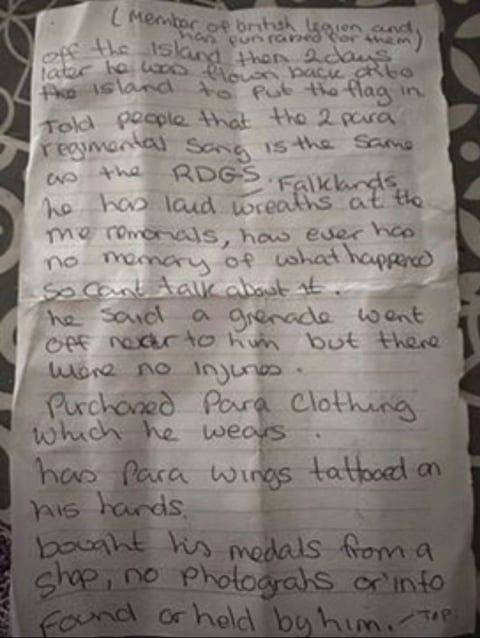 (Member of british legion and
has funraised for them)
off the Island then 2 days
later he was flown back onto
the island to put the flag in
Told people that the 2 para
regimental Sang is the same
as the RDGS. Falklands
he has laid wreaths at the
me remonals, how ever has
no memory of what happened
so cant talk about it.
he said a grenade went
off next to him but there
were no injuries.
Purchased Para Clothing
which he wears.
has Para wings tattooed on
his hands.
bought his medals from a
shop, no photograhs or info
found or held by him. - TOP